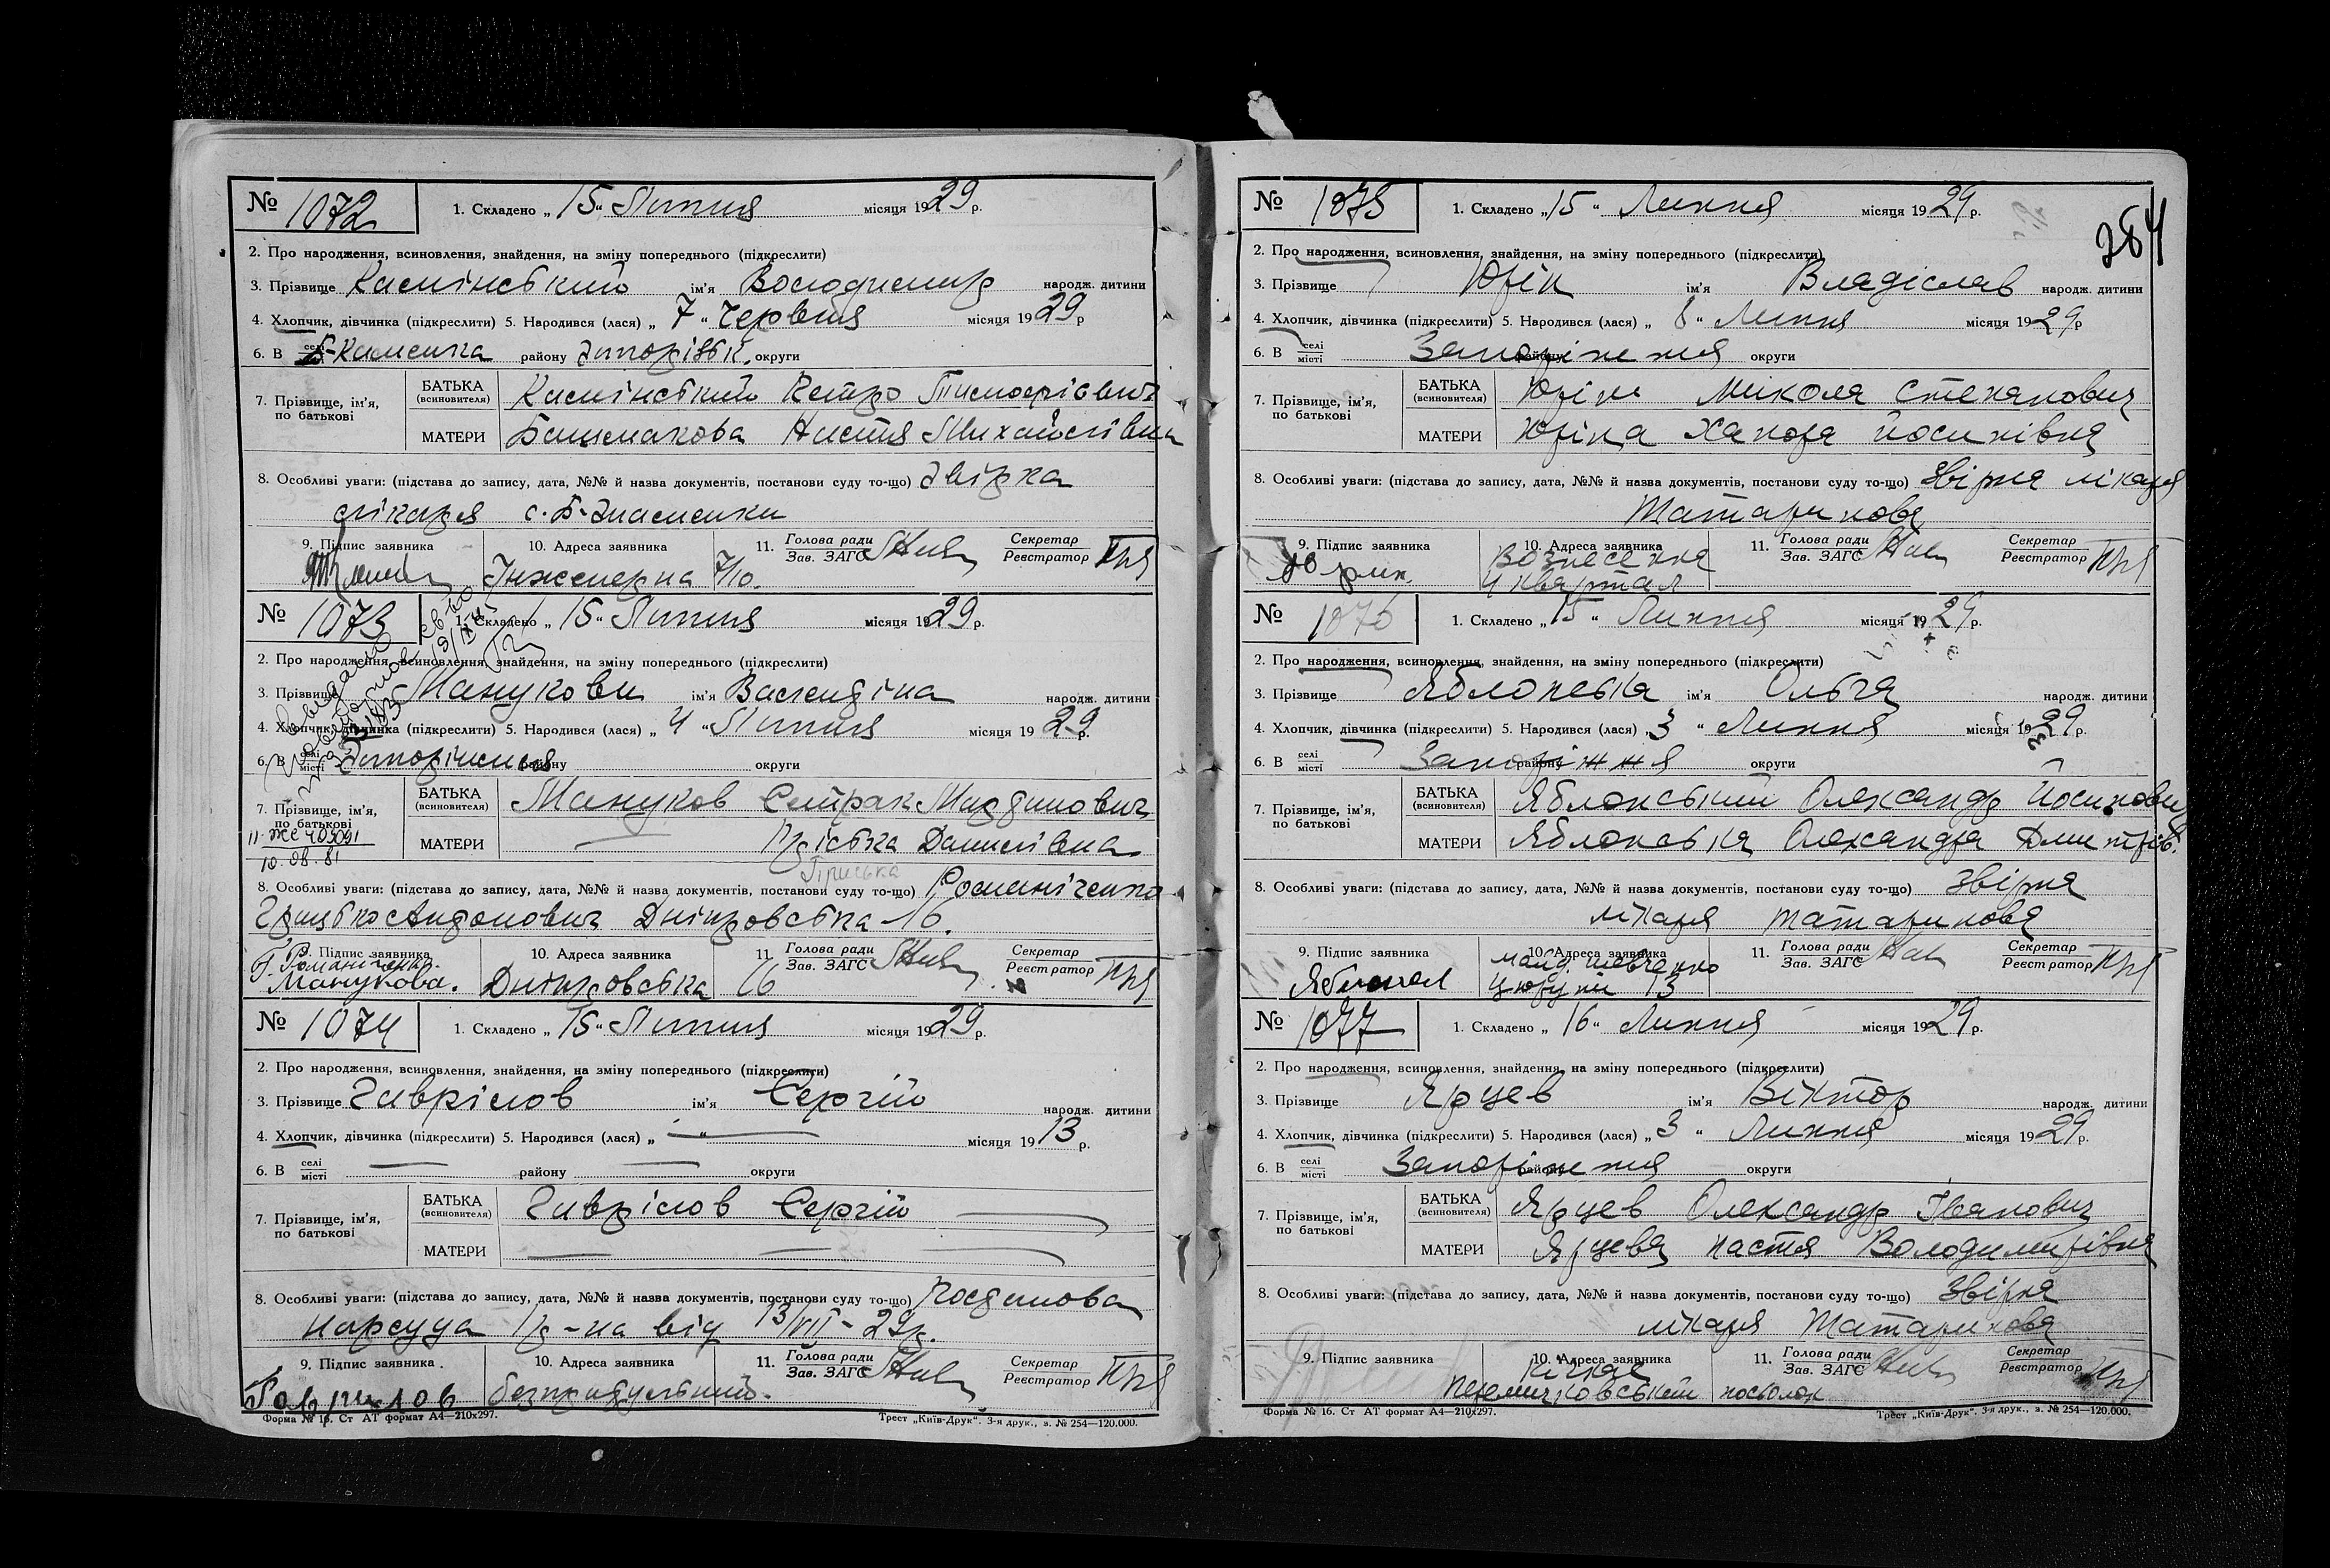 № 1072 1. Складено „ 15 “ Липня місяця 1929 р.
2. Про народження, всиновлення, знайдення, на зміну попереднього (підкреслити)
3. Прізвище Камінський ім'я Володимир народж. дитини
4. Хлопчик, дівчинка (підкреслити) 5. Народився (лася) „ 7 “ Червня місяця 1929 р
6. В селі місті Каменка району Запорізьк. округи
7. Прізвище, ім'я, по батькові БАТЬКА (всиновителя) Камінський Петро Тимофієвич
МАТЕРИ Башмакова Настя Михайлівна
8. Особливі уваги: (підстава до запису, дата, №№ й назва документів, постанови суду то-що) Звірка
лікаря с. Б-Знаменки
9. Підпис заявника 10. Адреса заявника 11. Голова ради Зав. ЗАГС Секретар Реєстратор
Інженерна 7/10.
№ 1073 1. Складено „ 15 “ Липня місяця 1929 р.
2. Про народження, всиновлення, знайдення, на зміну попереднього (підкреслити)
3. Прізвище Манукова ім'я Валендіна народж. дитини
4. Хлопчик, дівчинка (підкреслити) 5. Народився (лася) „ 4 “ Липня місяця 1929 р.
6. В селі місті Запоріжжя району округи
7. Прізвище, ім'я, по батькові БАТЬКА (всиновителя) Мануков Сетрак
МАТЕРИ Данилівна
11-ЖС 405091
10.08.81
8. Особливі уваги: (підстава до запису, дата, №№ й назва документів, постанови суду то-що) Романіченко
Грицько Андонович Дніпровська 16.
9. Підпис заявника 10. Адреса заявника 11. Голова ради Зав. ЗАГС Секретар Реєстратор
Г. Романіченко.
Манукова. Дніпровська 16
№ 1074 1. Складено „ 15 “ Липня місяця 1929 р.
2. Про народження, всиновлення, знайдення, на зміну попереднього (підкреслити)
3. Прізвище Гаврілов ім'я Сергій народж. дитини
4. Хлопчик, дівчинка (підкреслити) 5. Народився (лася) „ — “ — місяця 1913 р.
6. В селі місті — району — округи
7. Прізвище, ім'я, по батькові БАТЬКА (всиновителя) Гаврілов Сергій —
МАТЕРИ — — —
8. Особливі уваги: (підстава до запису, дата, №№ й назва документів, постанови суду то-що) Постанова
нарсуда р-на від 13/VII-29р.
9. Підпис заявника 10. Адреса заявника 11. Голова ради Зав. ЗАГС Секретар Реєстратор
Гаврилов безпридульний.
Форма № 16. Ст АТ формат А4—210х297. Трест „Київ-Друк“. 3-я друк., з. № 254—120.000.
264
№ 1075 1. Складено „ 15 “ Липня місяця 1929 р.
2. Про народження, всиновлення, знайдення, на зміну попереднього (підкреслити)
3. Прізвище Юрін ім'я Владіслав народж. дитини
4. Хлопчик, дівчинка (підкреслити) 5. Народився (лася) „ 8 “ Липня місяця 1929 р
6. В селі місті Запоріжжя району округи
7. Прізвище, ім'я, по батькові БАТЬКА (всиновителя) Юрін Микола Степанович
МАТЕРИ Юріна Йосипівна
8. Особливі уваги: (підстава до запису, дата, №№ й назва документів, постанови суду то-що) Звірка лікаря
Татаринова
9. Підпис заявника 10. Адреса заявника 11. Голова ради Зав. ЗАГС Секретар Реєстратор
Юрин Вознесенка
4 квартал
№ 1076 1. Складено „ 15 “ Липня місяця 1929 р.
2. Про народження, всиновлення, знайдення, на зміну попереднього (підкреслити)
3. Прізвище Яблонська ім'я Ольга народж. дитини
4. Хлопчик, дівчинка (підкреслити) 5. Народився (лася) „ 3 “ Липня місяця 1929 р.
6. В селі місті Запоріжжя району округи
7. Прізвище, ім'я, по батькові БАТЬКА (всиновителя) Яблонський Олександр Йосипович
МАТЕРИ Яблонська Олександра Дмитрів.
8. Особливі уваги: (підстава до запису, дата, №№ й назва документів, постанови суду то-що) Звірка
лікаря Татаринова
9. Підпис заявника 10. Адреса заявника 11. Голова ради Зав. ЗАГС Секретар Реєстратор
майд. Шевченко
13
№ 1077 1. Складено „ 16 “ Липня місяця 1929 р.
2. Про народження, всиновлення, знайдення, на зміну попереднього (підкреслити)
3. Прізвище Ярцев ім'я Віктор народж. дитини
4. Хлопчик, дівчинка (підкреслити) 5. Народився (лася) „ 3 “ Липня місяця 1929 р.
6. В селі місті Запоріжжя району округи
7. Прізвище, ім'я, по батькові БАТЬКА (всиновителя) Ярцев Олександр Іванович
МАТЕРИ Ярцева Настя Володимирівна
8. Особливі уваги: (підстава до запису, дата, №№ й назва документів, постанови суду то-що) Звірка
лікаря Татаринова
9. Підпис заявника 10. Адреса заявника 11. Голова ради Зав. ЗАГС Секретар Реєстратор
Кічкас
посьолок
Форма № 16. Ст АТ формат А4—210х297. Трест „Київ-Друк“. 3-я друк., з. № 254—120.000.